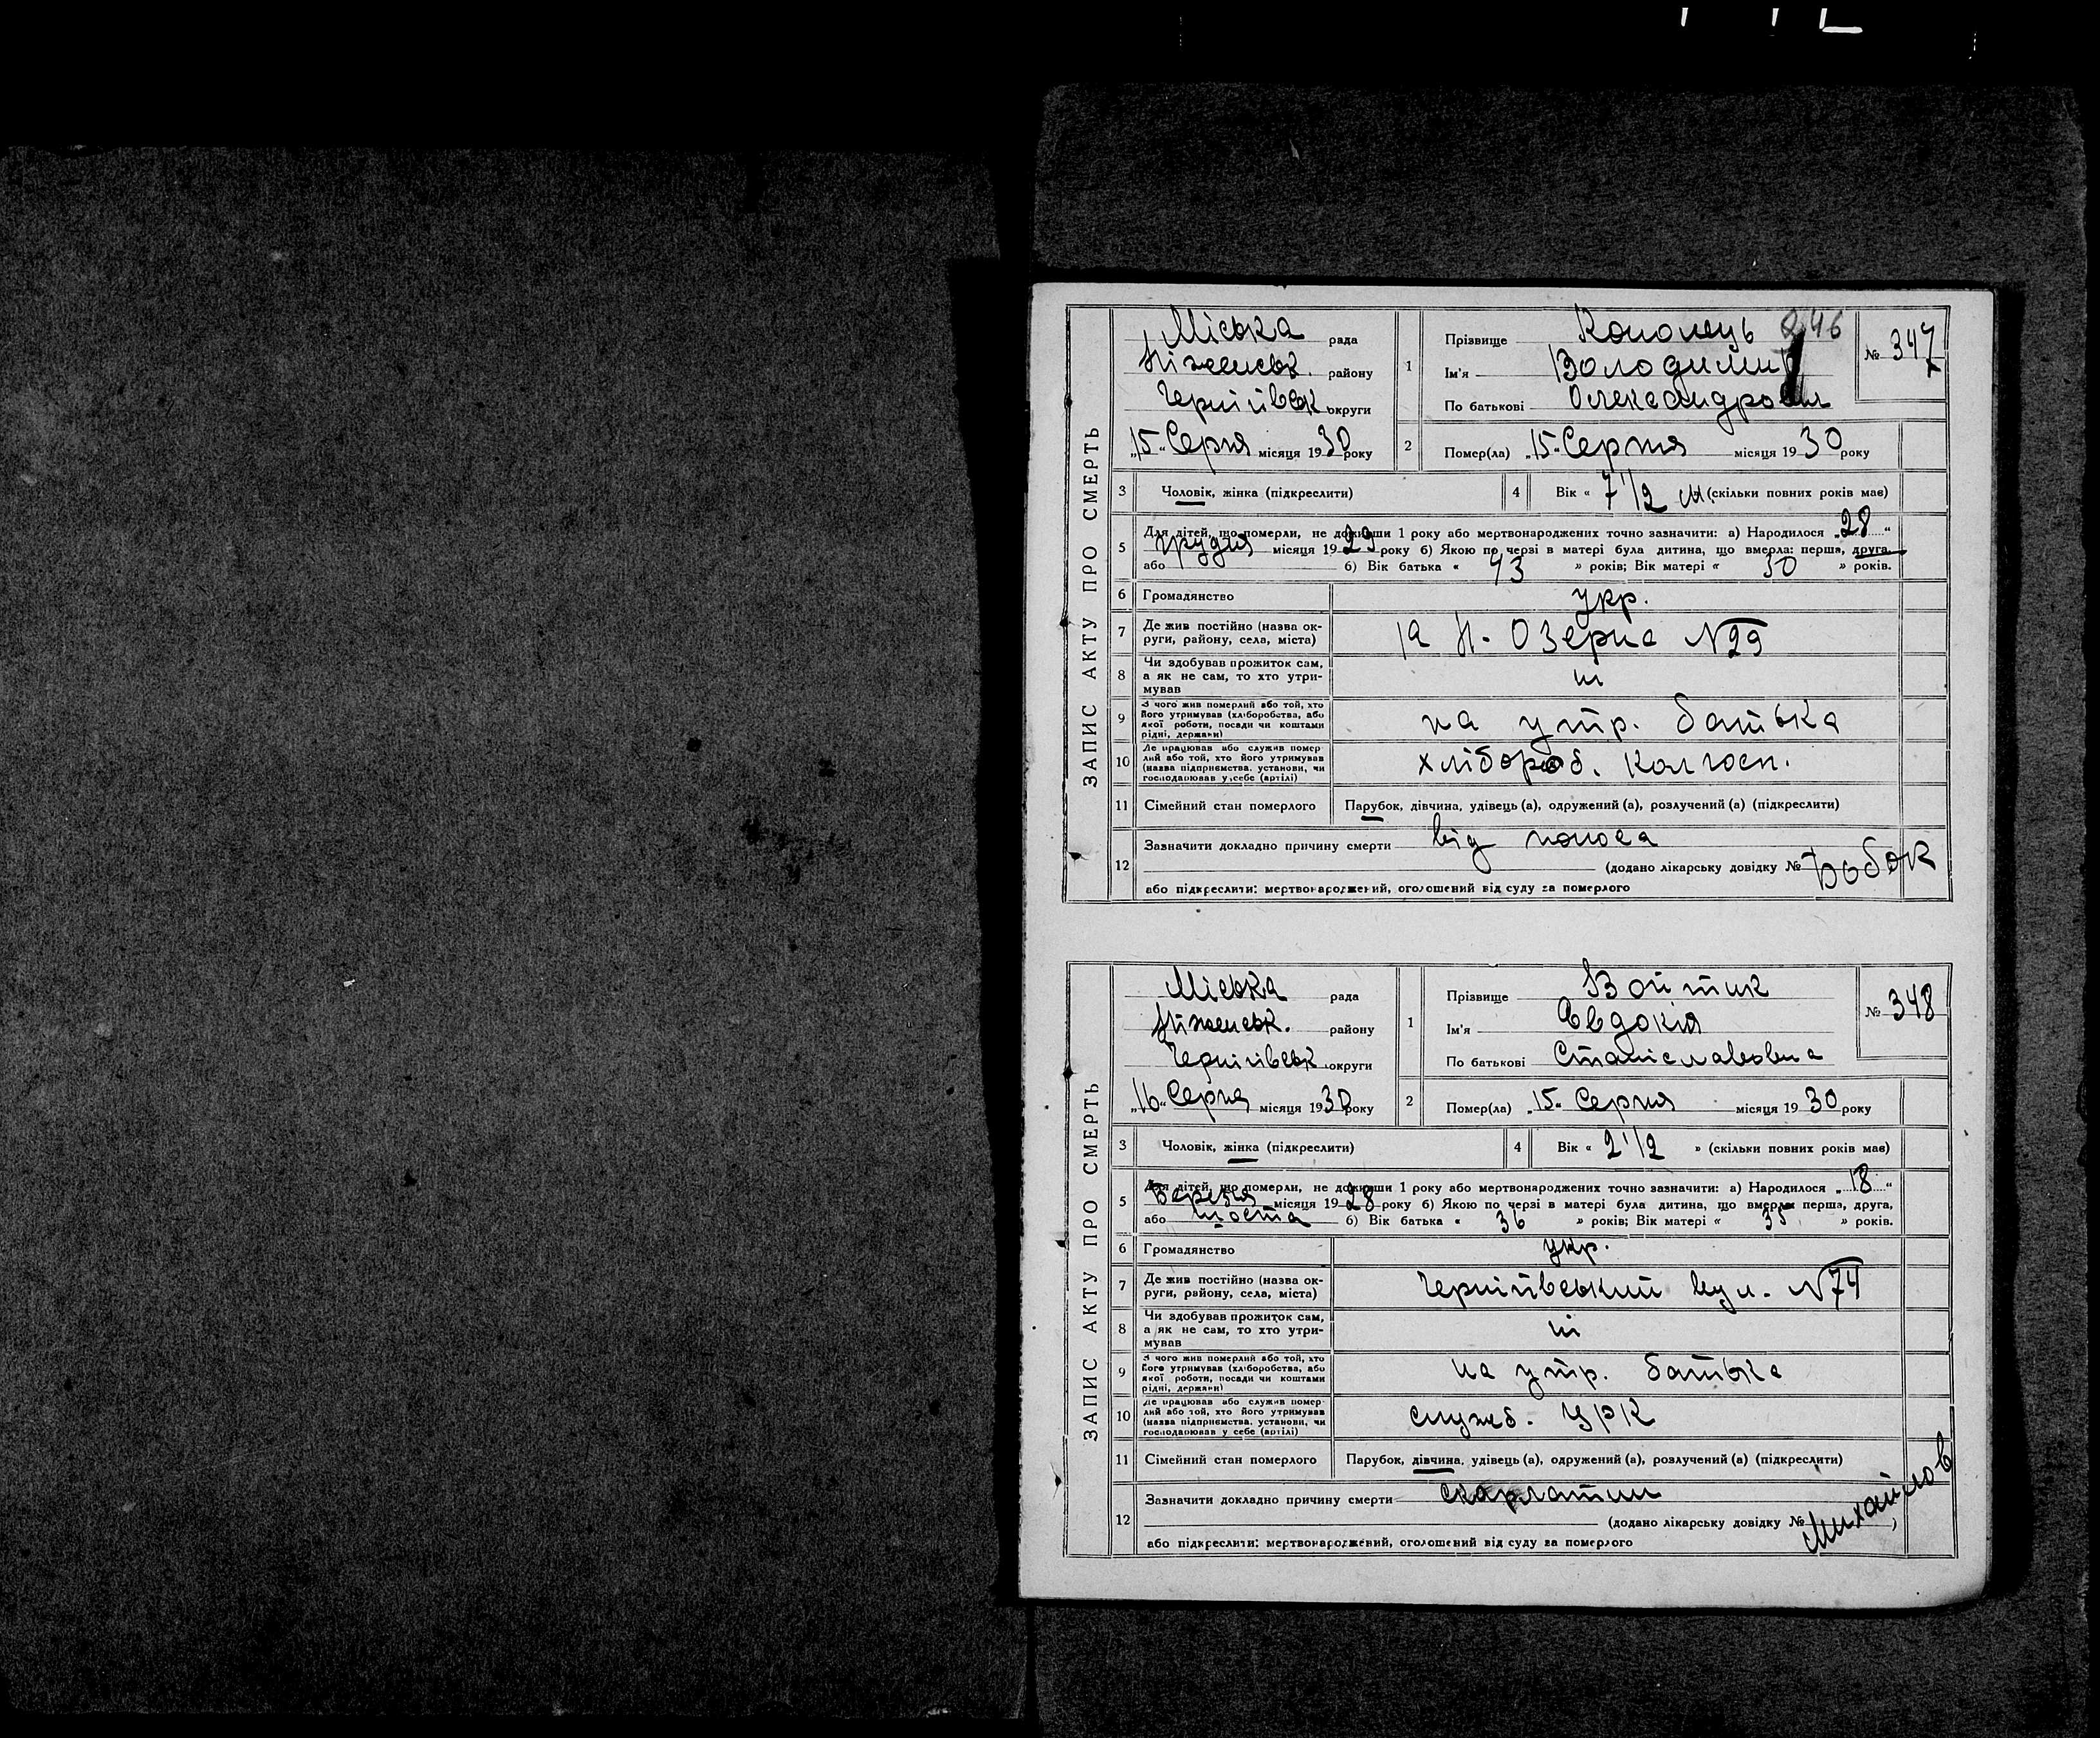 ЗАПИС АКТУ ПРО СМЕРТЬ
Міська рада
Ніженськ. району
Чернігівськ округи
„15“ Серпня місяця 1930 року
1 Прізвище Кополець 246
Ім'я Володимир
По батькові Олександрович
№ 347
2 Помер(ла) „15“ Серпня місяця 1930 року
3 Чоловік, жінка (підкреслити)
4 Вік « 7 1/2 м. (скільки повних років має)
5 Для дітей, що померли, не доживши 1 року або мертвонароджених точно зазначити: а) Народилося „28“
грудня місяця 1929 року б) Якою по черзі в матері була дитина, що вмерла: перша, друга,
або б) Вік батька « 43 » років; Вік матері « 30 » років.
6 Громадянство укр.
7 Де жив постійно (назва округи, району, села, міста) Озерна №29
8 Чи здобував прожиток сам, а як не сам, то хто утримував ні
9 З чого жив померлий або той, хто його утримував (хліборобства, або якої роботи, посади чи коштами рідні, держави) на утр. батька
10 Де працював або служив померлий або той, хто його утримував (назва підприємства, установи, чи господарював у себе (артілі) хлібороб. Колгосп.
11 Сімейний стан померлого Парубок, дівчина, удівець (а), одружений (а), розлучений (а) (підкреслити)
12 Зазначити докладно причину смерти від поноса
(додано лікарську довідку №
або підкреслити: мертвонароджений, оголошений від суду за померлого
ЗАПИС АКТУ ПРО СМЕРТЬ
Міська рада
Ніженськ. району
Чернігівськ округи
„16“ Серпня місяця 1930 року
1 Прізвище Войтик
Ім'я Євдокія
По батькові Станіславовна
№ 348
2 Помер(ла) „15“ Серпня місяця 1930 року
3 Чоловік, жінка (підкреслити)
4 Вік « 2 1/2 » (скільки повних років має)
5 Для дітей, що померли, не доживши 1 року або мертвонароджених точно зазначити: а) Народилося „18“
Березня місяця 1928 року б) Якою по черзі в матері була дитина, що вмерла: перша, друга,
або шоста б) Вік батька « 36 » років; Вік матері « 35 » років.
6 Громадянство укр.
7 Де жив постійно (назва округи, району, села, міста) Чернігівський вул. №74
8 Чи здобував прожиток сам, а як не сам, то хто утримував ні
9 З чого жив померлий або той, хто його утримував (хліборобства, або якої роботи, посади чи коштами рідні, держави) на утр. батька
10 Де працював або служив померлий або той, хто його утримував (назва підприємства, установи, чи господарював у себе (артілі) служб. ЦРК
11 Сімейний стан померлого Парубок, дівчина, удівець (а), одружений (а), розлучений (а) (підкреслити)
12 Зазначити докладно причину смерти скарлатини
(додано лікарську довідку № Михайлов )
або підкреслити: мертвонароджений, оголошений від суду за померлого